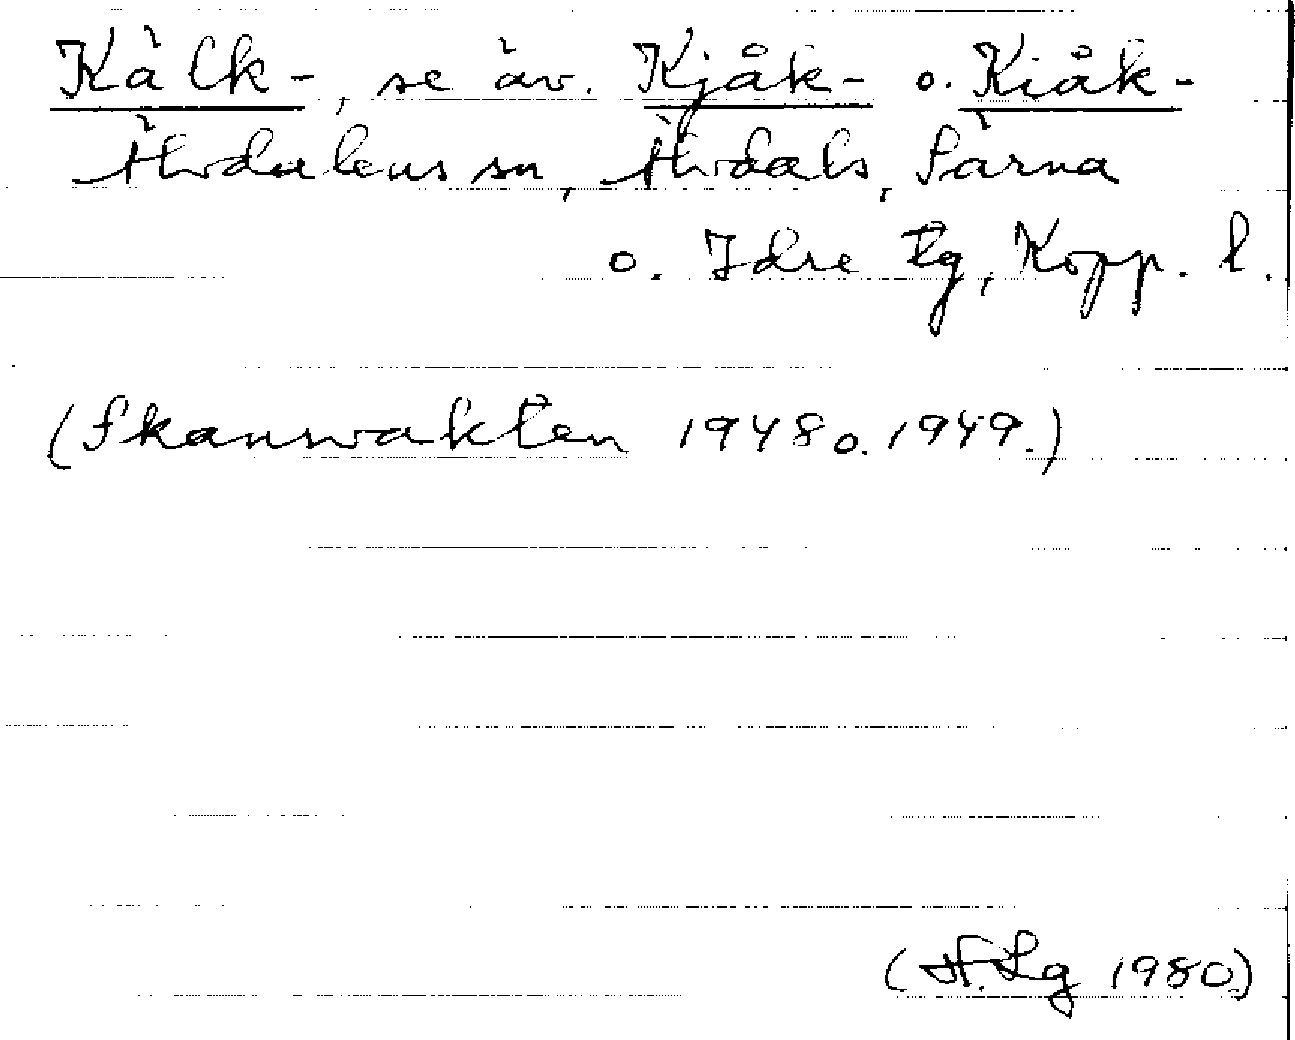 Kälk-, se äv. Kjåk- o. Kiåk-
Älvdalens sn, Älvdals, Särna
o. Idre tg, Kopp. l.
(Skannvakten 1948 o. 1949.)
(H. Lg 1980)